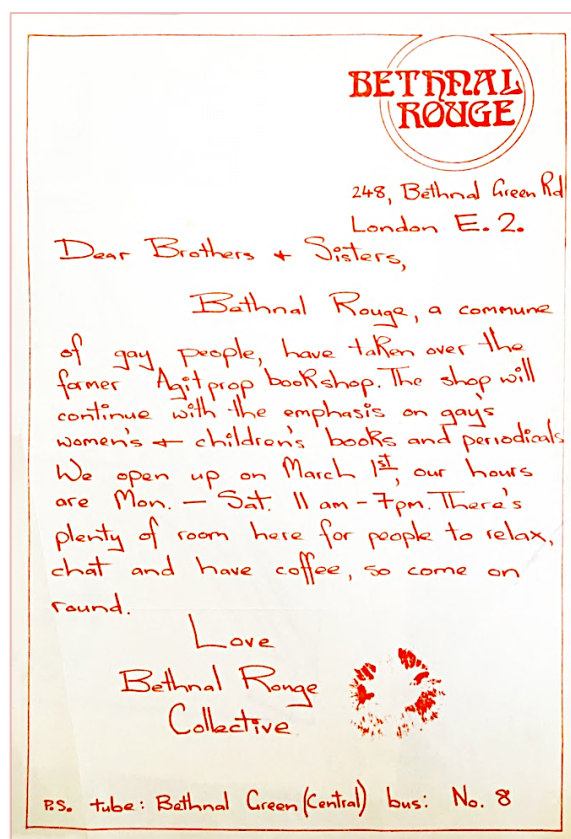 BETHNAL
ROUGE
248, Bethnal Green Rd
London E. 2.
Dear Brothers + Sisters,
Bethnal Rouge, a commune
of gay people, have taken over the
former Agitprop bookshop. The shop will
continue with the emphasis on gay's
women's + children's books and periodicals
We open up on March 1st, our hours
are Mon. — Sat. 11 am - 7pm. There's
plenty of room here for people to relax,
chat and have coffee, so come on
round.
Love
Bethnal Rouge
Collective
P.S. tube: Bethnal Green (Central) bus: No. 8